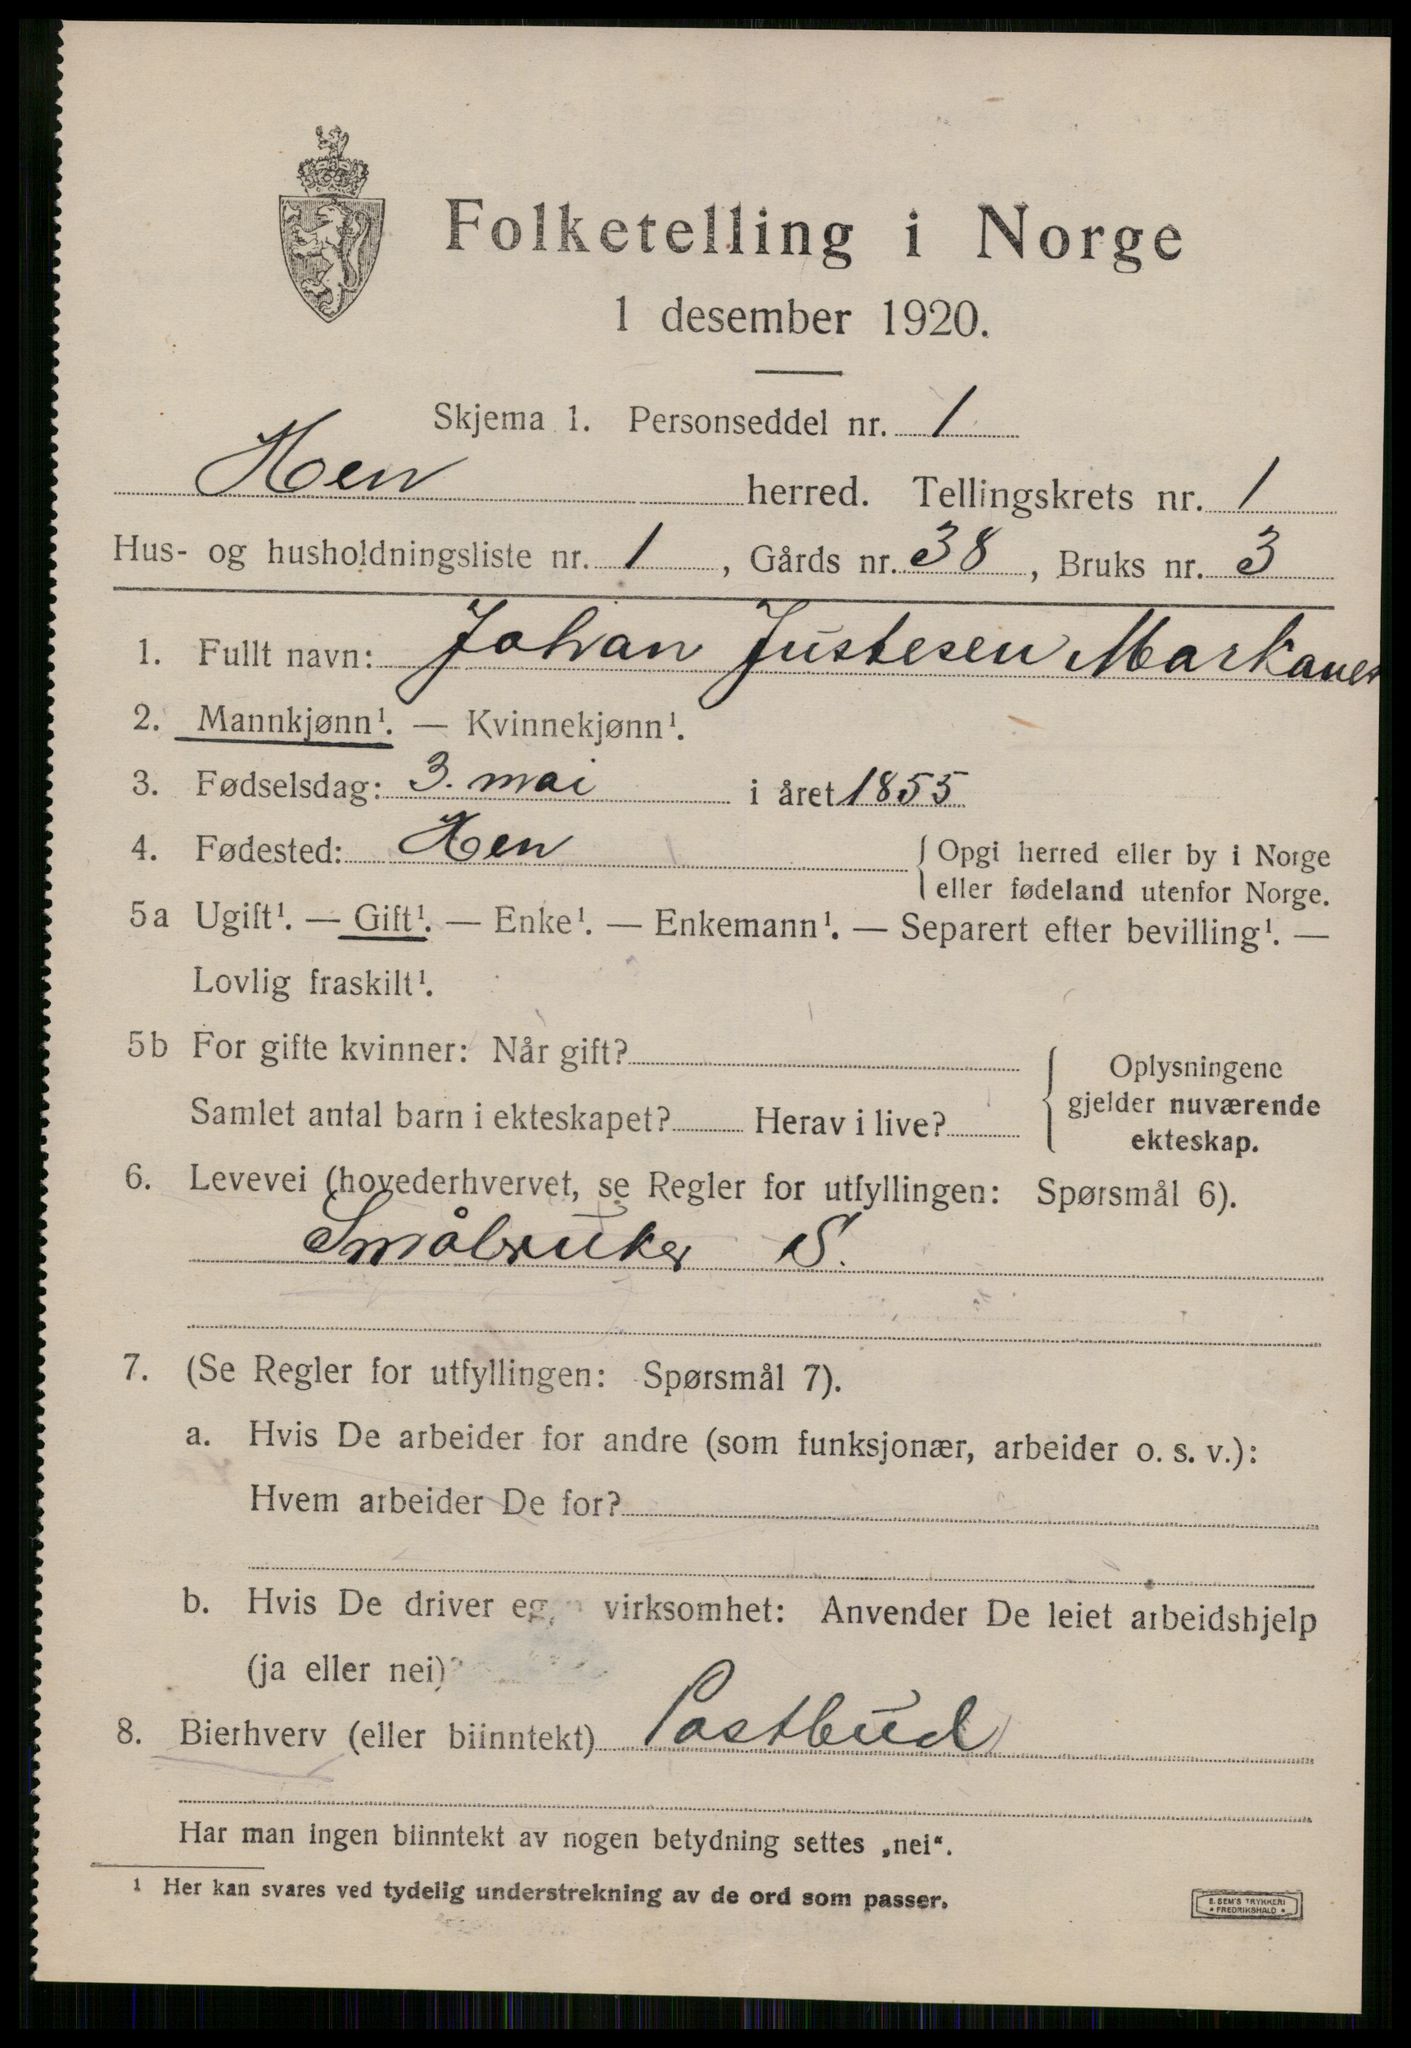 Folketelling i Norge
1 desember 1920.
Skjema 1. Personseddel nr. 1
Hen herred. Tellingskrets nr. 1
Hus- og husholdningsliste nr. 1, Gårds nr. 38, Bruks nr. 3
1. Fullt navn: Johan Justesen Markanes
2. Mannkjønn¹. — Kvinnekjønn¹.
3. Fødselsdag: 3. mai i året 1855
4. Fødested: Hen
Opgi herred eller by i Norge
eller fødeland utenfor Norge.
5a Ugift¹. — Gift¹. — Enke¹. — Enkemann¹. — Separert efter bevilling¹. —
Lovlig fraskilt¹.
5b For gifte kvinner: Når gift?
Samlet antal barn i ekteskapet? Herav i live?
Oplysningene
gjelder nuværende
ekteskap.
6. Levevei (hovederhvervet, se Regler for utfyllingen: Spørsmål 6).
Småbruker S.
7. (Se Regler for utfyllingen: Spørsmål 7).
a. Hvis De arbeider for andre (som funksjonær, arbeider o. s. v.):
Hvem arbeider De for?
b. Hvis De driver egen virksomhet: Anvender De leiet arbeidshjelp
(ja eller nei)?
8. Bierhverv (eller biinntekt) Postbud
Har man ingen biinntekt av nogen betydning settes „nei“.
¹ Her kan svares ved tydelig understrekning av de ord som passer.
S. SEM'S TRYKKERI
* FREDRIKSHALD *